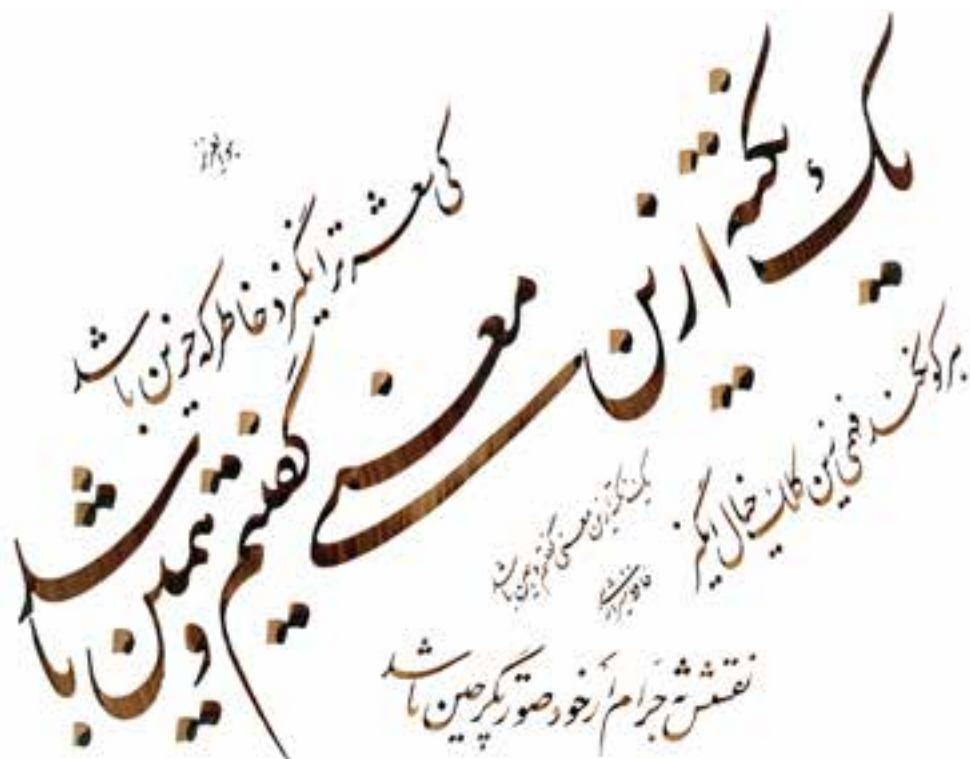 کی شعر تر انگیزد خاطر که حزین باشد
یک نکته ازین معنی گفتیم و همین باشد
هر کو نکند فهمی زین کلک خیال انگیز
یک نکته ازین معنی گفتیم و همین باشد
نقشش به حرام ار خود صورتگر چین باشد